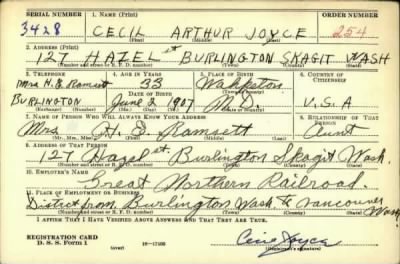 SERIAL NUMBER 1. Name (Print) ORDER NUMBER
3428 CECIL ARTHUR JOYCE 254
(First) (Middle) (Last)
2. Address (Print)
127 HAZEL st BURLINGTON SKAGIT WASH
(Number and street or R. F. D. number) (Town) (County) (State)
3. Telephone 4. Age in Years 5. Place of Birth 6. Country of Citizenship
Mrs H.D. Ramsett 33 Wahpeton
Date of Birth (Town or county)
BURLINGTON June 2 1907 N.D. U.S.A
(Exchange) (Number) (Mo.) (Day) (Yr.) (State or country)
7. Name of Person Who Will Always Know Your Address 8. Relationship of That Person
Mrs. H. D. Ramsett Aunt
(Mr., Mrs., Miss) (First) (Middle) (Last)
9. Address of That Person
127 Hazel st. Burlington Skagit Wash.
(Number and street or R. F. D. number) (Town) (County) (State)
10. Employer's Name
Great Northern Railroad.
11. Place of Employment or Business
District from Burlington Wash to Vancouver Wash
(Number and street or R. F. D. number) (Town) (County) (State)
I Affirm That I Have Verified Above Answers and That They Are True.
REGISTRATION CARD
D. S. S. Form 1 (over) 16—17105 Cecil Joyce
(Registrant's signature)